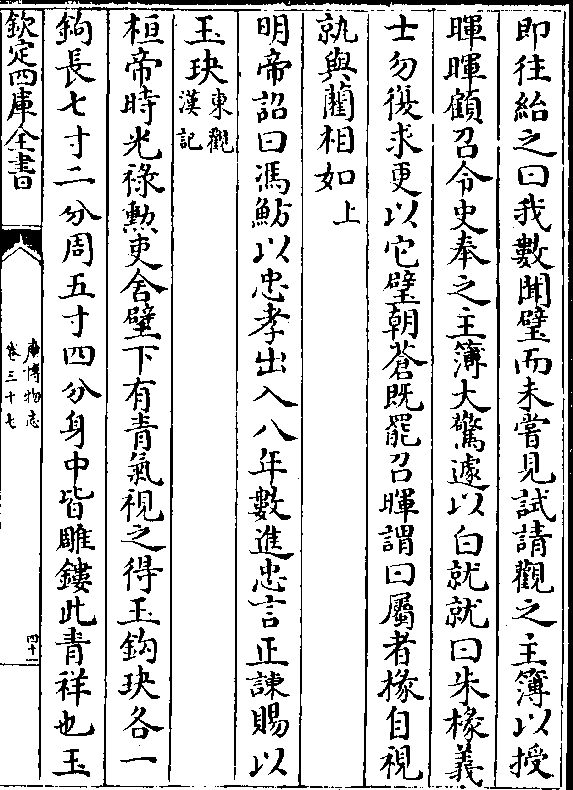 即往紿之曰我數聞璧而未嘗見試請觀之主簿以授
暉暉顧召令史奉之主簿大驚遽以白就就曰朱掾義
士勿復求更以它璧朝蒼既罷召暉謂曰屬者掾自視
孰與藺相如上
明帝詔曰馮魴以忠孝出入八年數進忠言正諫賜以
玉玦東觀漢記
桓帝時光祿勲吏舍壁下有青氣視之得玉鈎玦各一
鈎長七寸二分周五寸四分身中皆雕鏤此青祥也玉
欽定四庫全書
廣博物志
卷三十七
四十一